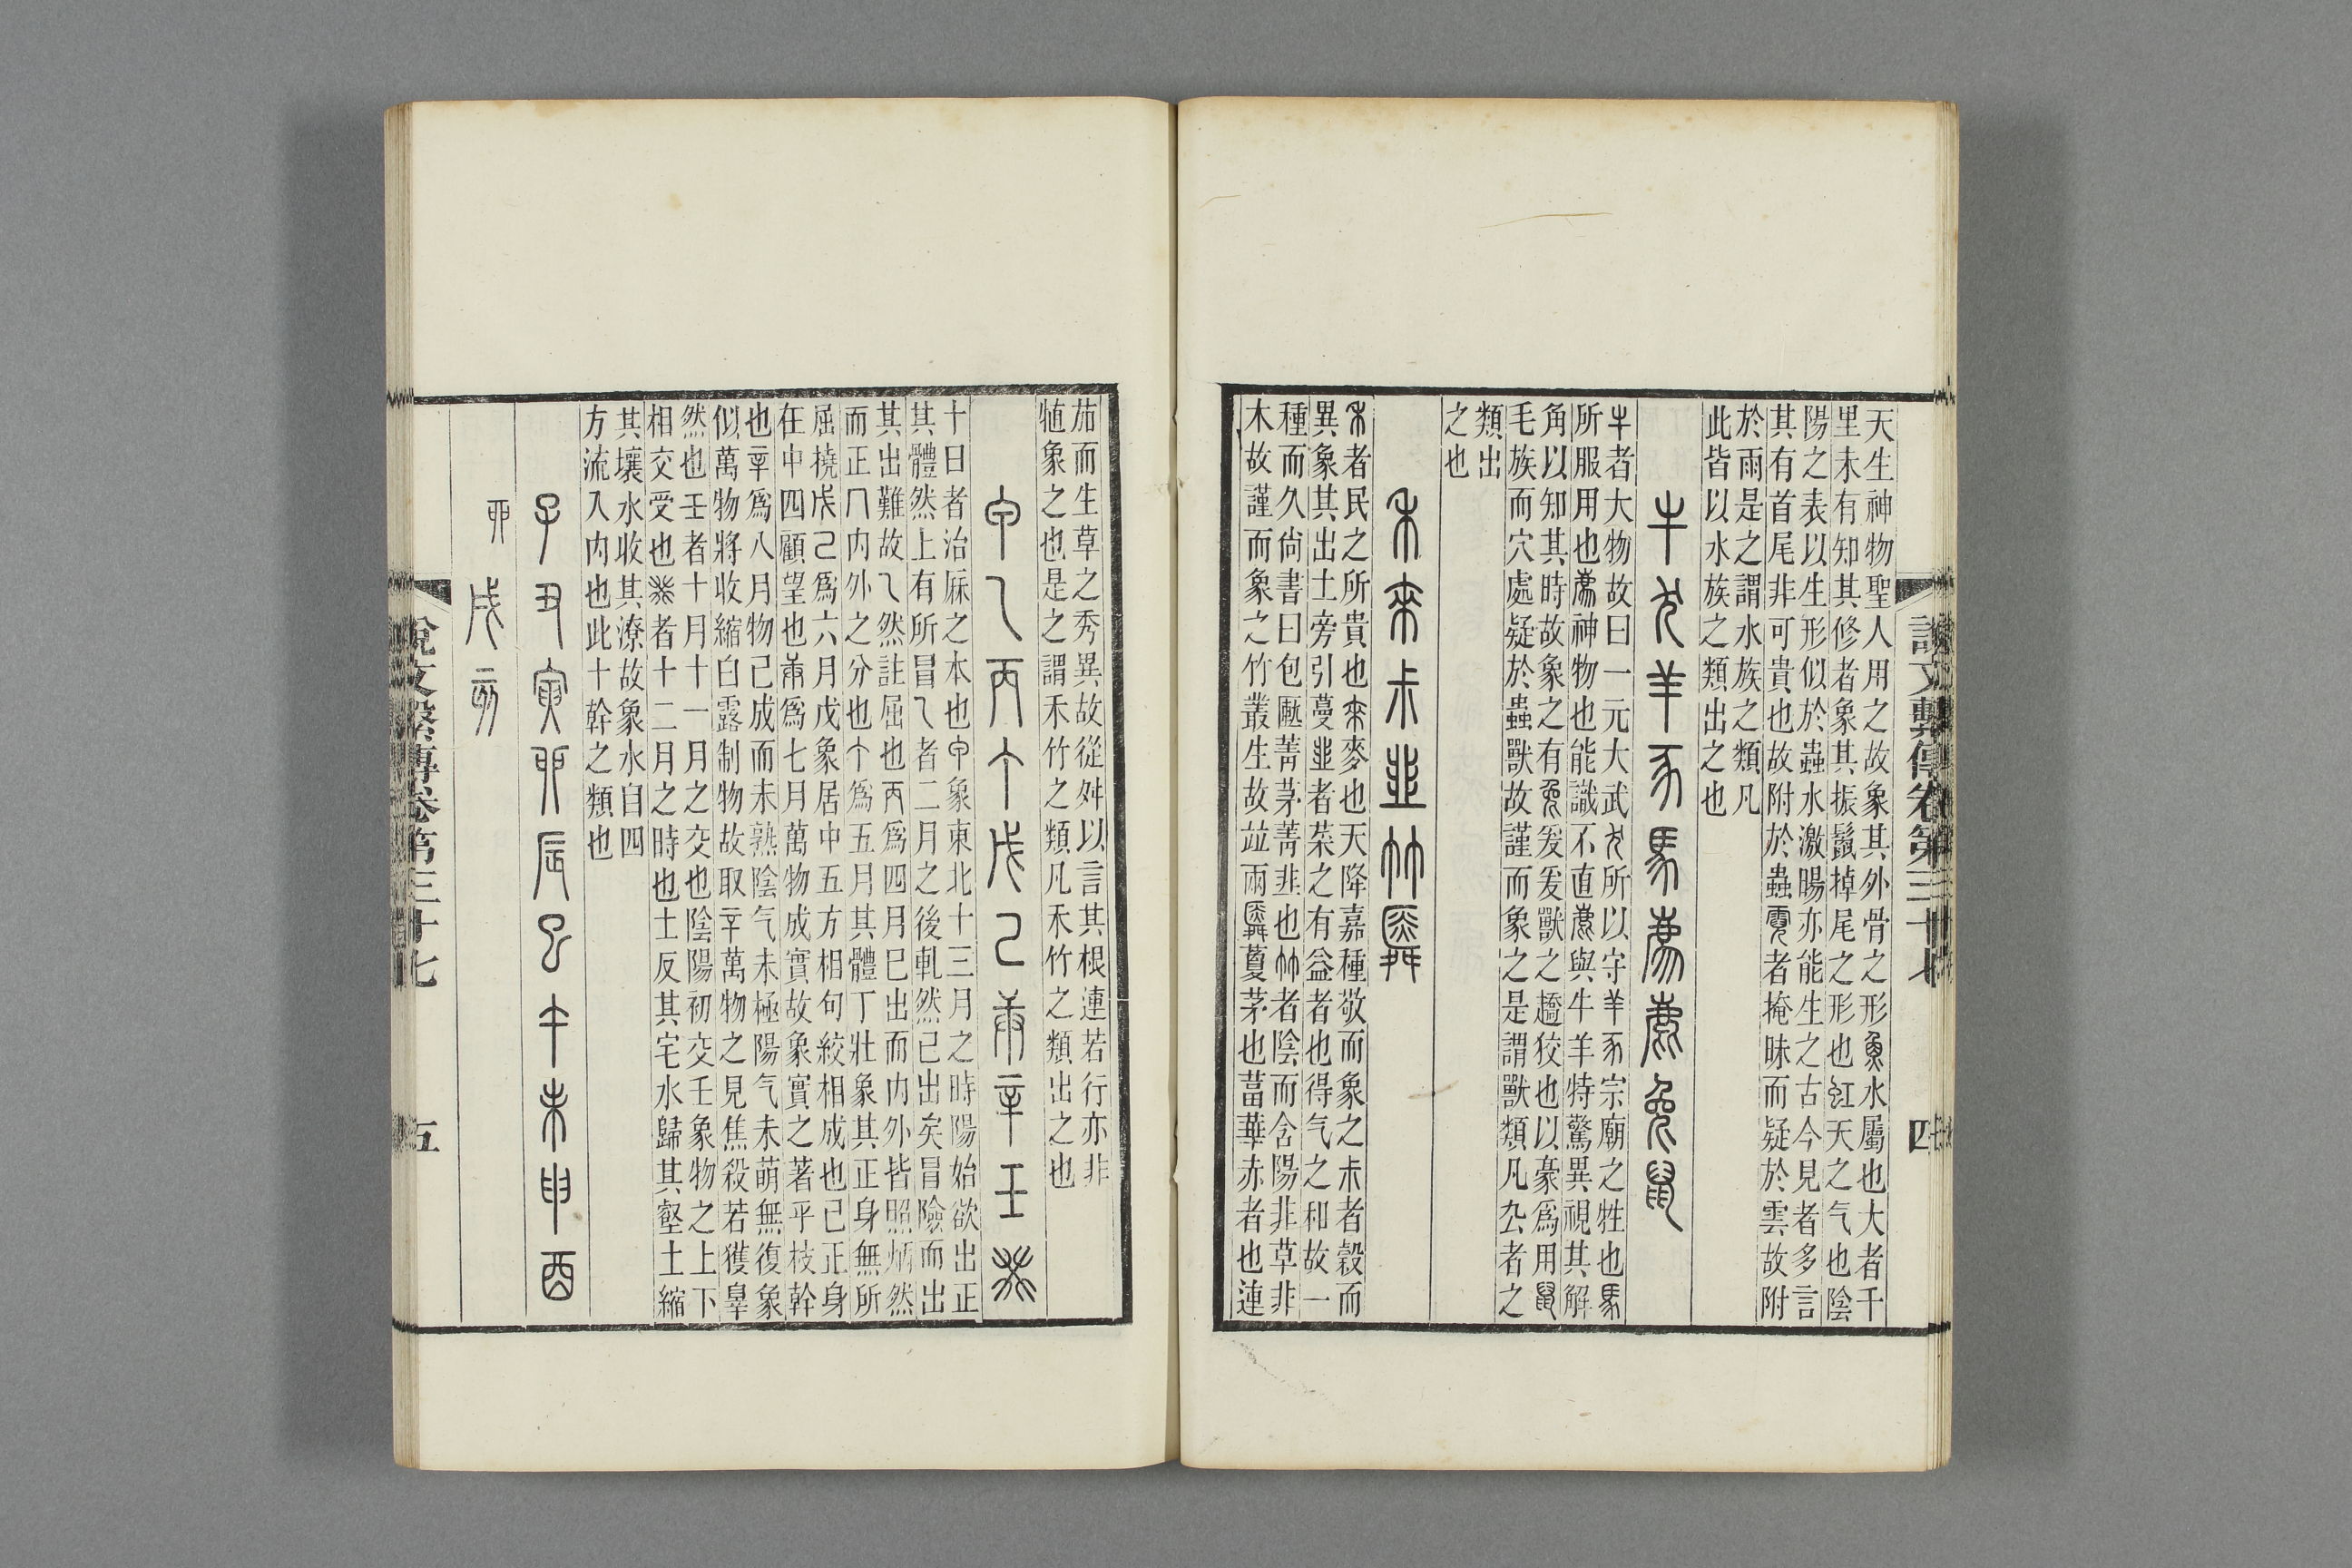 天生神物聖人用之故象其外骨之形魚水屬也大者千
里未有知其修者象其振鬛掉尾之形也虹天之气也陰
陽之表以生形似於蟲水激暘亦能生之古今見者多言
其有首尾非可貴也故附於蟲䨓者掩昧而疑於雲故附
於雨是之謂水族之類凡
此皆以水族之類出之也
牛羊豕馬廌鹿兔鼠
牛者大物故曰一元大武所以守羊豕宗廟之牲也馬
所服用也廌神物也能識不直廌與牛羊特驚異視其解
角以知其時故象之有兔爰爰獸之趫狡也以豪爲用鼠
毛族而穴處疑於蟲獸故謹而象之是謂獸類凡厹者之
類出
之也
禾來尗韭竹𦾓
禾者民之所貴也來麥也天降嘉種敬而象之尗者穀而
異象其出土旁引蔓韭者菜之有益者也得气之和故一
種而久尙書曰包匭菁茅菁韭也竹者陰而含陽非草非
木故謹而象之竹叢生故竝兩𦾓藑茅也葍華赤者也連
說文繫傳卷第三十七
四
茄而生草之秀異故從舜以言其根連若行亦非
植象之也是之謂禾竹之類凡禾竹之類出之也
甲乙丙丁戊己庚辛壬癸
十日者治厤之本也甲象東北十三月之時陽始欲出正
其體然上有所冒乙者二月之後軋然已出矣冒險而出
其出難故乙然詿屈也丙爲四月巳出而内外皆照炳然
而正冂内外之分也丁爲五月其體丁壯象其正身無所
屈橈戊己爲六月戊象居中五方相句絞相成也己正身
在中四顧望也庚爲七月萬物成實故象實之著平枝幹
也辛爲八月物已成而未熟陰气未極陽气未萌無復象
似萬物將收縮白露制物故取辛萬物之見焦殺若獲辠
然也壬者十月十一月之交也陰陽初交壬象物之上下
相交受也癸者十二月之時也土反其宅水歸其壑土縮
其壤水收其潦故象水自四
方流入内也此十幹之類也
子丑寅卯辰巳午未申酉
丣戌亥
說文繫傳卷第三十七
五